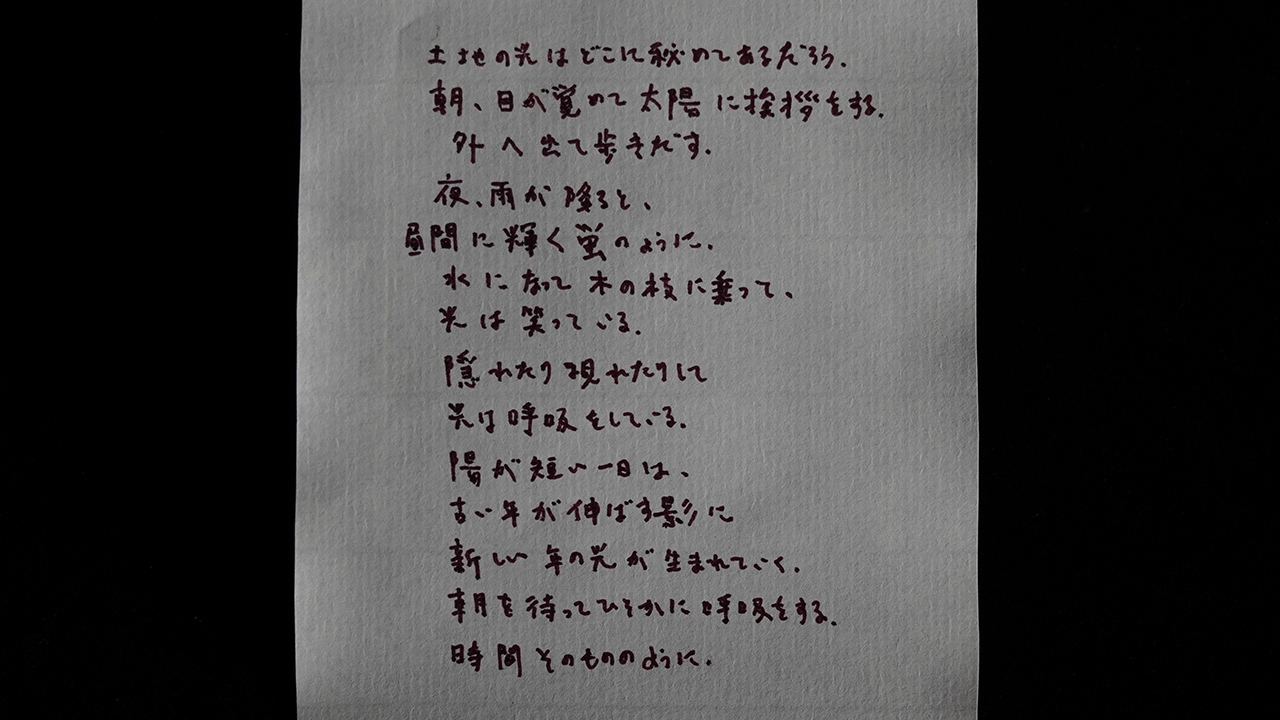 土地の光はどこに秘めてあるだろう.
朝、目が覚めて太陽に挨拶をする.
外へ出て歩きだす.
夜、雨が降ると、
昼間に輝く蛍のように.
水になって木の枝に乗って、
光は笑っている.
隠れたり現れたりして
光は呼吸をしている.
陽が短い一日は、
古い年が伸ばす影に
新しい年の光が生まれていく.
朝を待ってひそかに呼吸をする.
時間そのもののように.